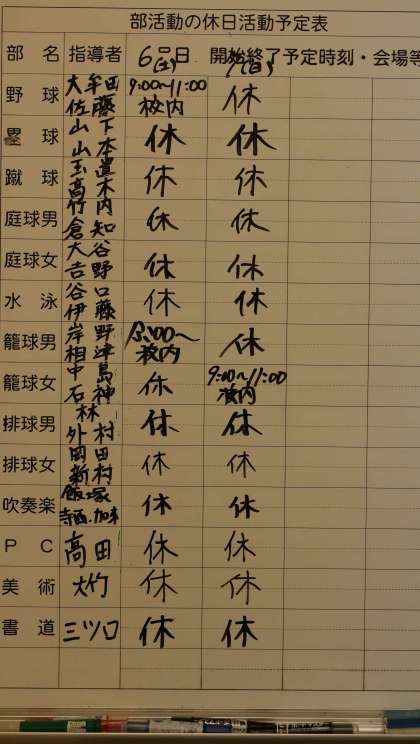 部活動の休日活動予定表
部 名 指導者 6日(土) 7(日) 開始終了予定時刻・会場等
野 球 大牟田 佐藤 9:00〜11:00 校内 休
塁 球 山下 山本 休 休
蹴 球 玉置 高木 休 休
庭球男 竹内 倉知 休 休
庭球女 大谷 吉野 休 休
水 泳 谷口 伊藤 休 休
籠球男 岸野 相津 校内 休
籠球女 中島 石神 休 9:00〜11:00 校内
排球男 林 外村 休 休
排球女 岡田 新村 休 休
吹奏楽 飯塚 寺西.加来 休 休
P C 高田 休 休
美 術 大竹 休 休
書 道 三ツ口 休 休